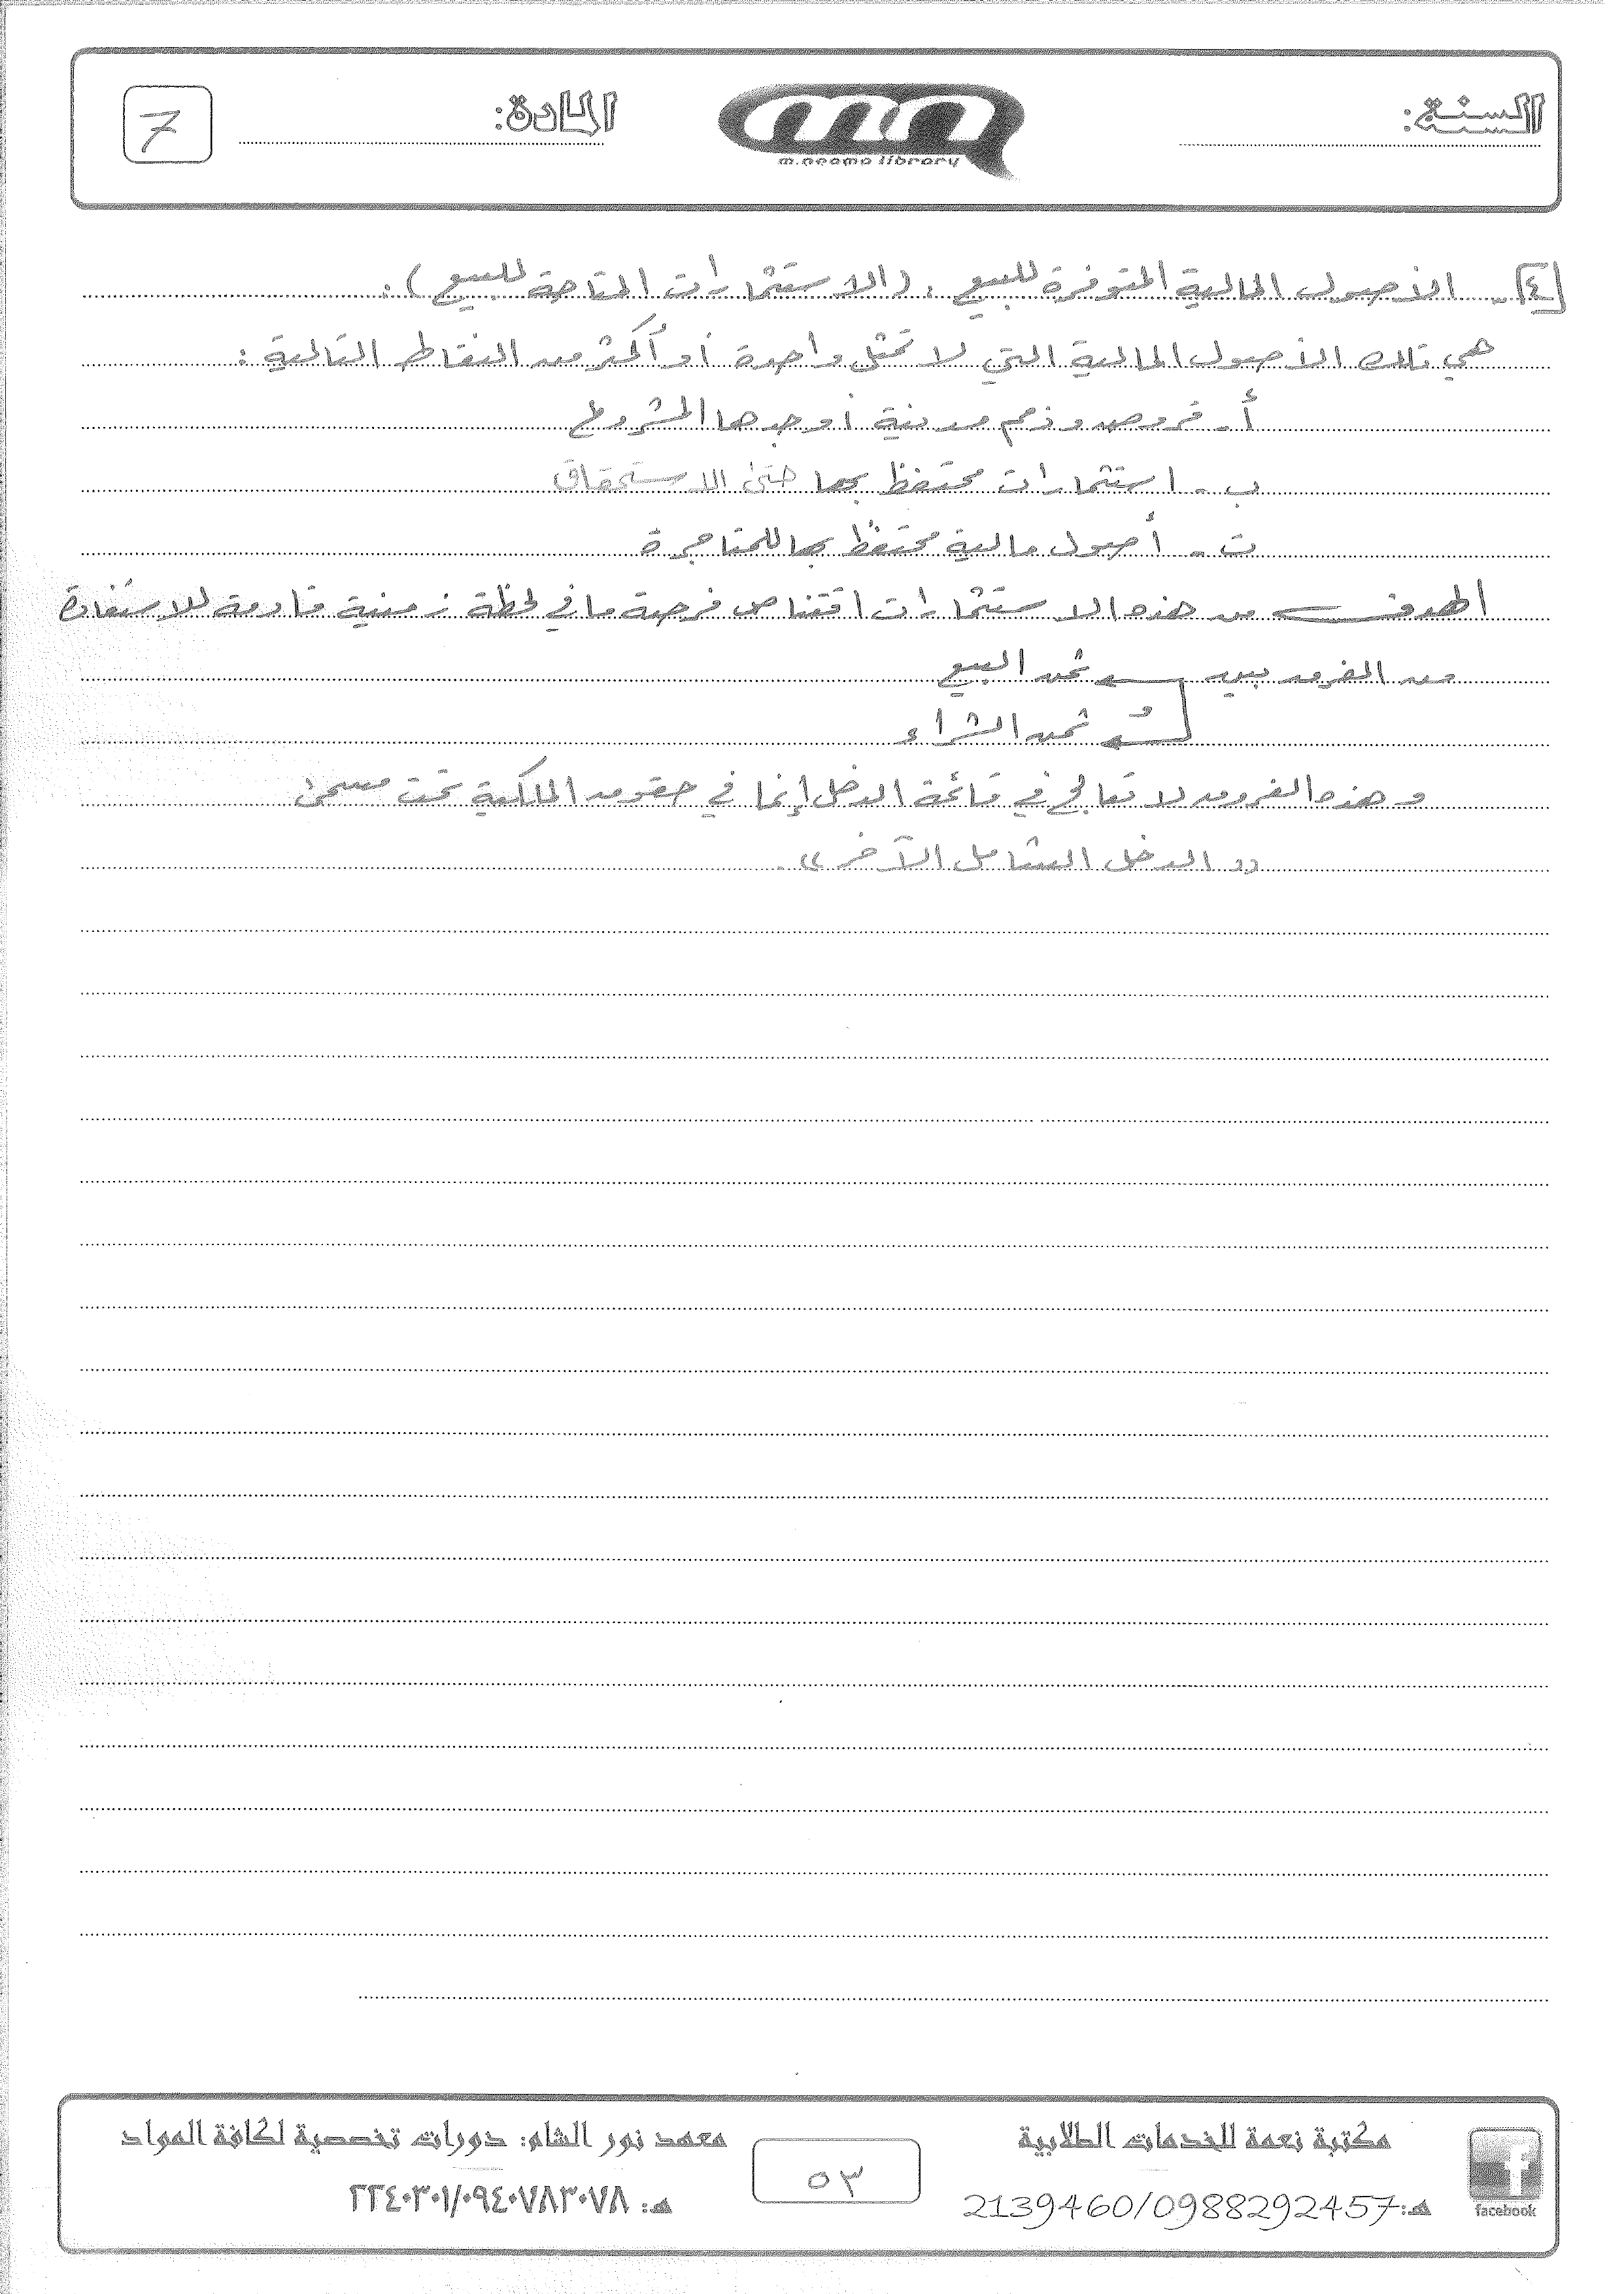 السنة:
m.neama library
المادة:
7
٤- الأصول المالية المتوفرة للبيع: (الاستثمارات المتاحة للبيع):
هي تلك الأصول المالية التي لا تمثل واحدة أو أكثر من النقاط التالية:
أ- قروض وذمم مدينة أوجدها المشروع
ب- استثمارات محتفظ بها حتى الاستحقاق
ت- أصول مالية محتفظ بها للمتاجرة
الهدف من هذه الاستثمارات اقتناص فرصة ما في لحظة زمنية قادمة للاستفادة
من الفرق بين ثمن البيع
و ثمن الشراء
وهذه الفروق لا تعالج في قائمة الدخل إنما في حقوق الملكية تحت مسمى
"الدخل الشامل الآخر".
مكتبة نعمة للخدمات الطلابية
هـ:2139460/0988292457
facebook
٥٣
معهد نور الشام: دورات تخصصية لكافة المواد
هـ: ٢٢٤٠٣٠١/٠٩٤٠٧٨٣٠٧٨